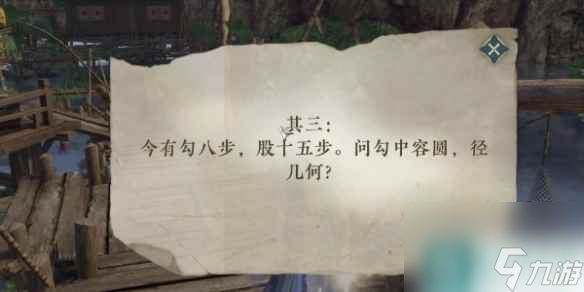 其三：
今有勾八步，股十五步。问勾中容圆，径
几何？
九游